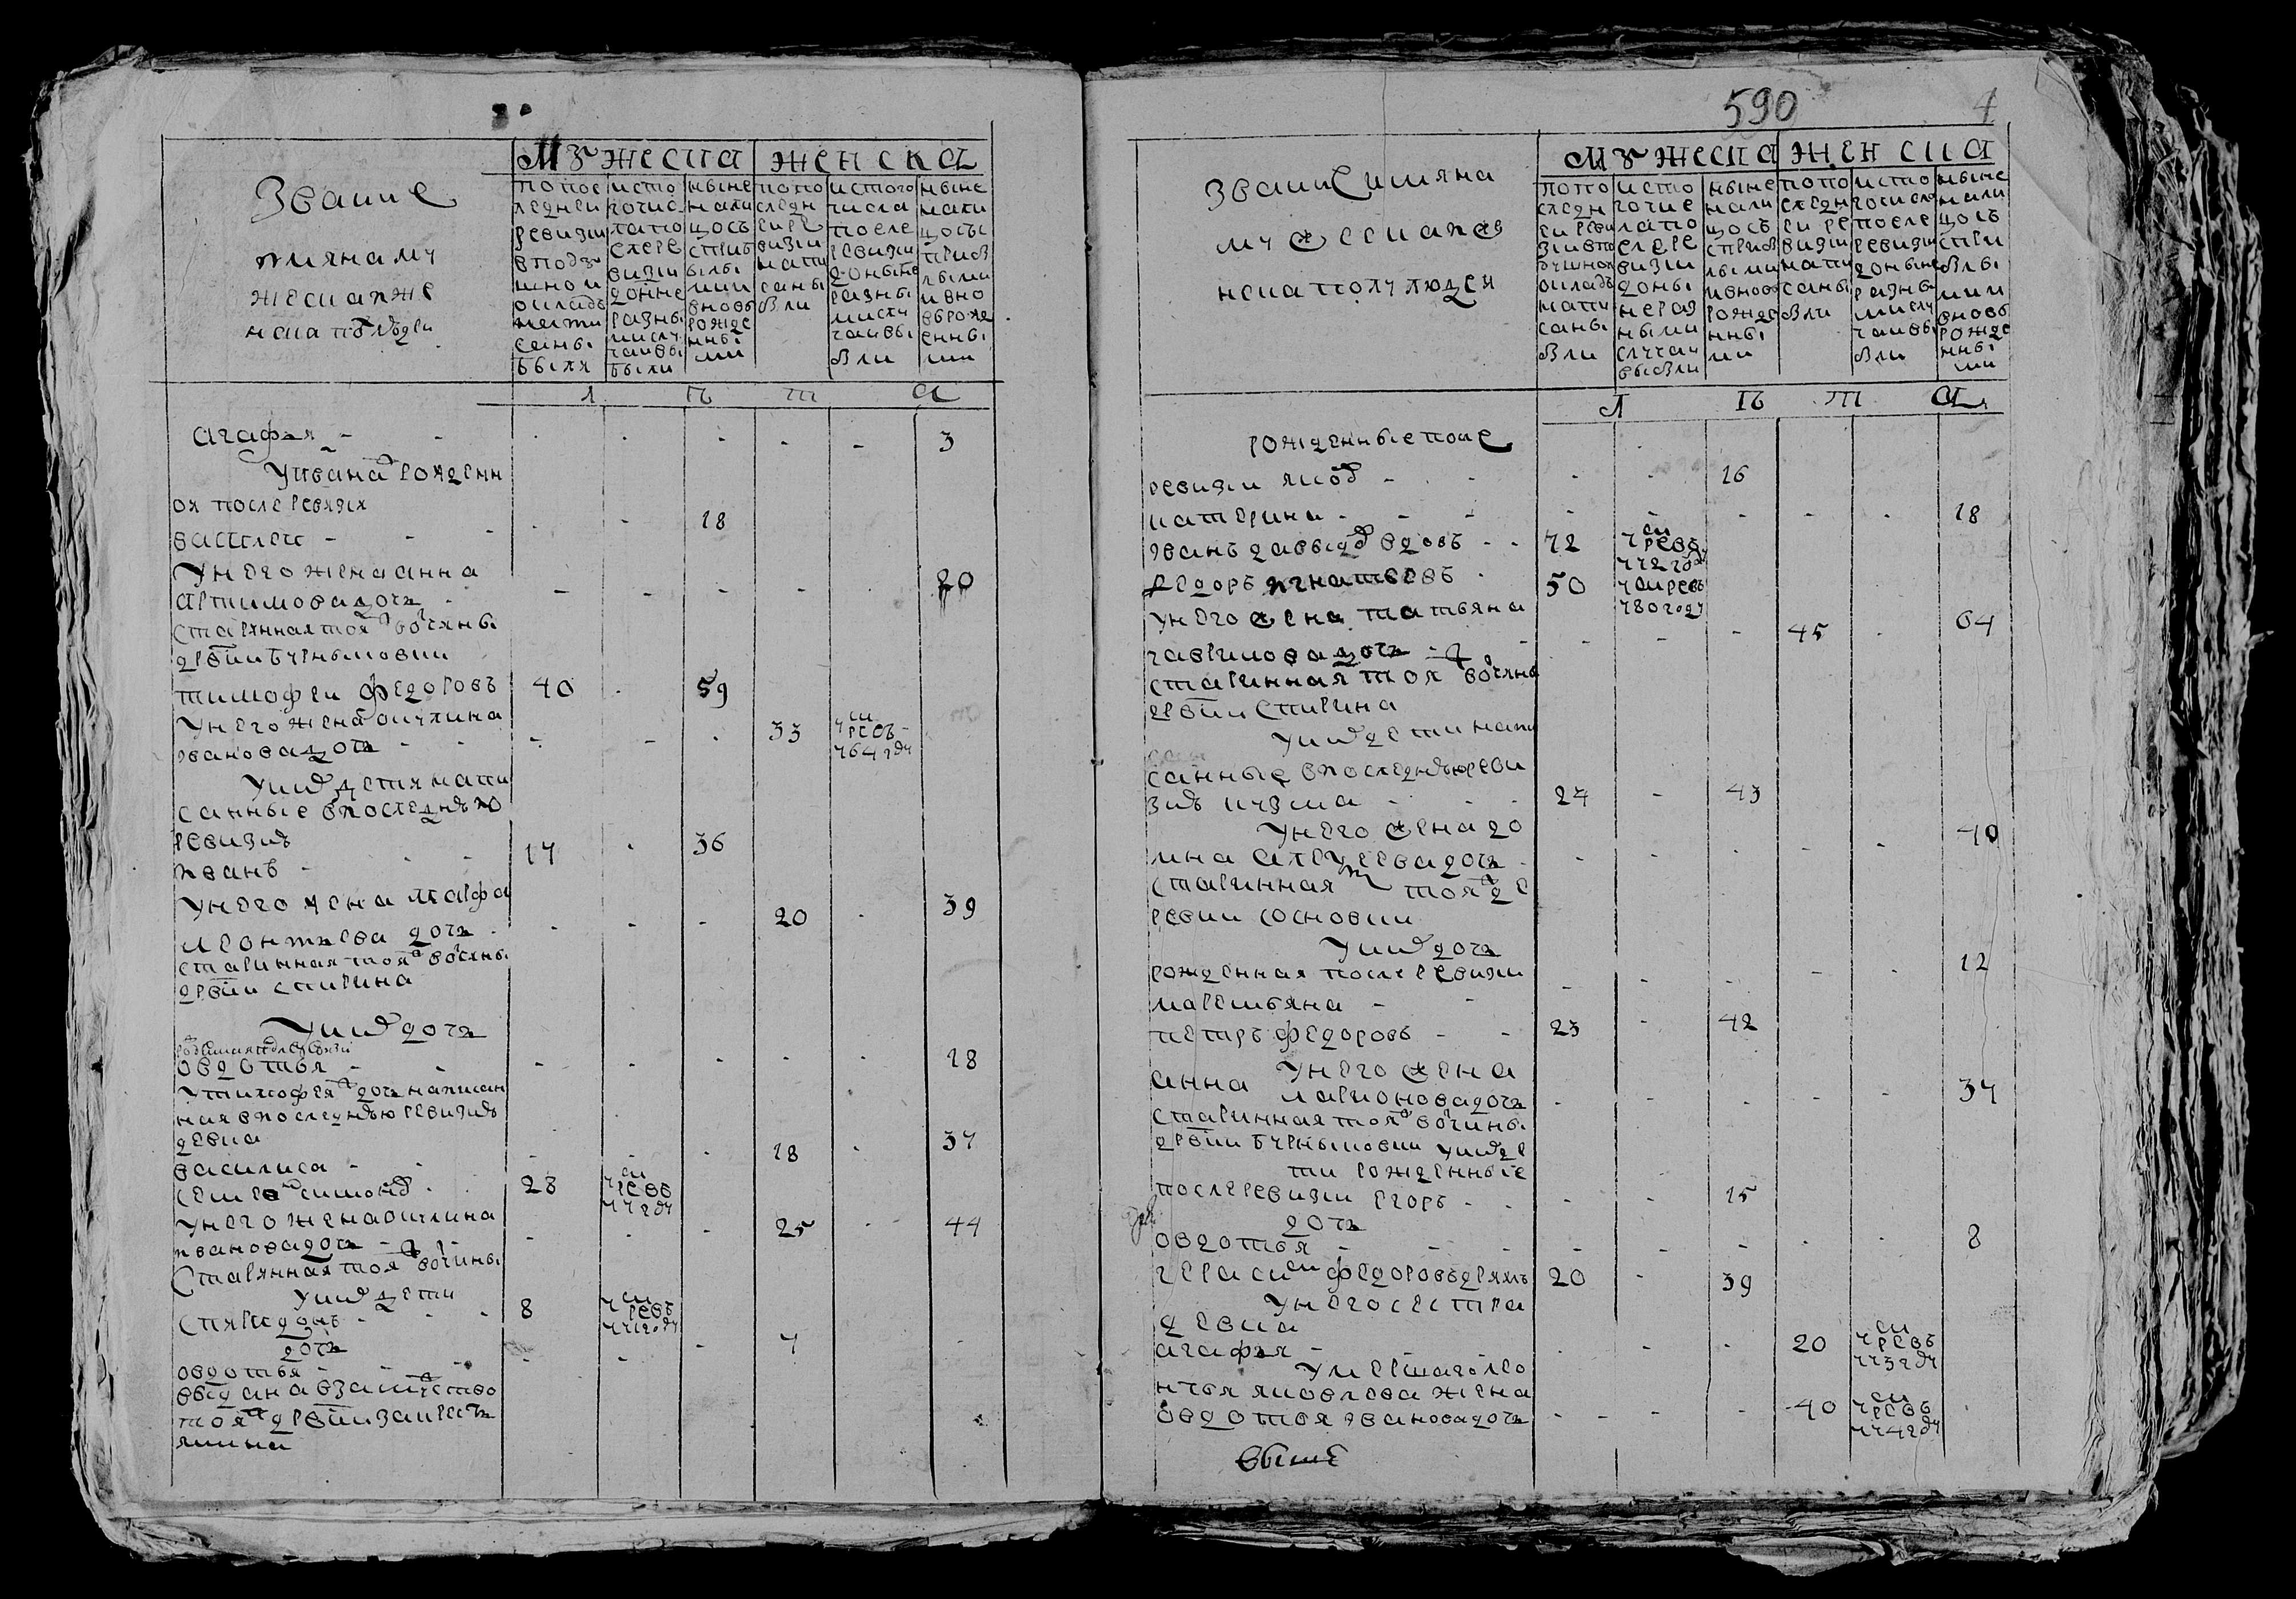 Звание
имяна му
жеска и же
нска полу людеи
Мужеска женска
по пос
леднеи
ревизии
в поду
шнои
окладъ
напи
саны
были
ис то
го чис
ла по
сле ре
визии
до ны не
разны
ми слу
чаи вы
были
ныне
нали
цо съ
прибы
лыми
и вновь
рожде
нны
ми
по по
следн
еи ре
визии
напи
саны
были
ис того
числа
после
ревизии
до ныне
разны
ми слу
чаи вы
были
ныне
нали
цо съ
прибы
лыми
и вно
вь рож
денны
ми
лѣта
агафья - - 3
у ивана рожденн
ои после ревизии
василеи - 18
у него жена анна
артимова дочь 20
старинная тои вочины
древни бурнымовки
тимофеи федоровъ 40 59
у него жена окулина
иванова дочь 33 умре въ 764 году
у них дети напи
санные в последнюю
ревизию
иванъ 17 36
у него жена марфа
леонтьева дочь 20 39
старинная тои вочины
древни спирина
у них дочь
рожденная после ревизии
овдотья 18
у тимофея дочь написан
ная в последнюю ревизию
девка
василиса 18 37
семен симонов 28 умре въ 77 году
у него жена окулина
иванова дочь 25 44
старинная тои вочины
у них дети
спиридонъ 8 умре въ 771 году
дочь 7
овдотья
выдана в замужество
тои древни за крестья
нина
590
4
Звание имяна
мужеска и же
нска полу людеи
мужеска женска
по по
следн
еи реви
зии в по
душном
окладъ
напи
саны
были
ис то
го чис
ла по
сле ре
визии
до ны
не раз
ными
случаи
выбыли
ныне
нали
цо съ
прибы
лыми
и вновь
рожде
нны
ми
по по
следн
еи ре
визии
напи
саны
были
ис то
го числа
после
ревизии
до ныне
разны
ми слу
чаи вы
были
ныне
нали
цо съ
при
былы
ми и
вновь
рожде
нны
ми
лѣта
рожденные посе
ревизии яков 16
катерина - 18
иванъ давыдов вдовъ 72 умре въ 772 году
федоръ игнатьевъ 50 умре въ 780 году
у него жена татьяна
гаврилова дочь 45 64
старинная тои вочины
древни спирина
у них дети напи
санные в последнюю реви
зию кузма 24 43
у него жена до
мна алексеева дочь 40
старинная тои де
ревни сосновки
у них дочь
рожденная после ревизии 12
маремьяна -
петръ федоровъ 23 42
у него жена
анна ларионова дочь 37
старинная тои вочины
древни бурнымовки у них де
ти рожденные
после ревизии егоръ 15
дочь
овдотья 8
герасим федоровъ 20 39
у него сестра
девка
агафья 20 умре въ 773 году
у умершаго лео
нтья яковлева жена
овдотья иванова дочь 40 умре въ 774 году
выше